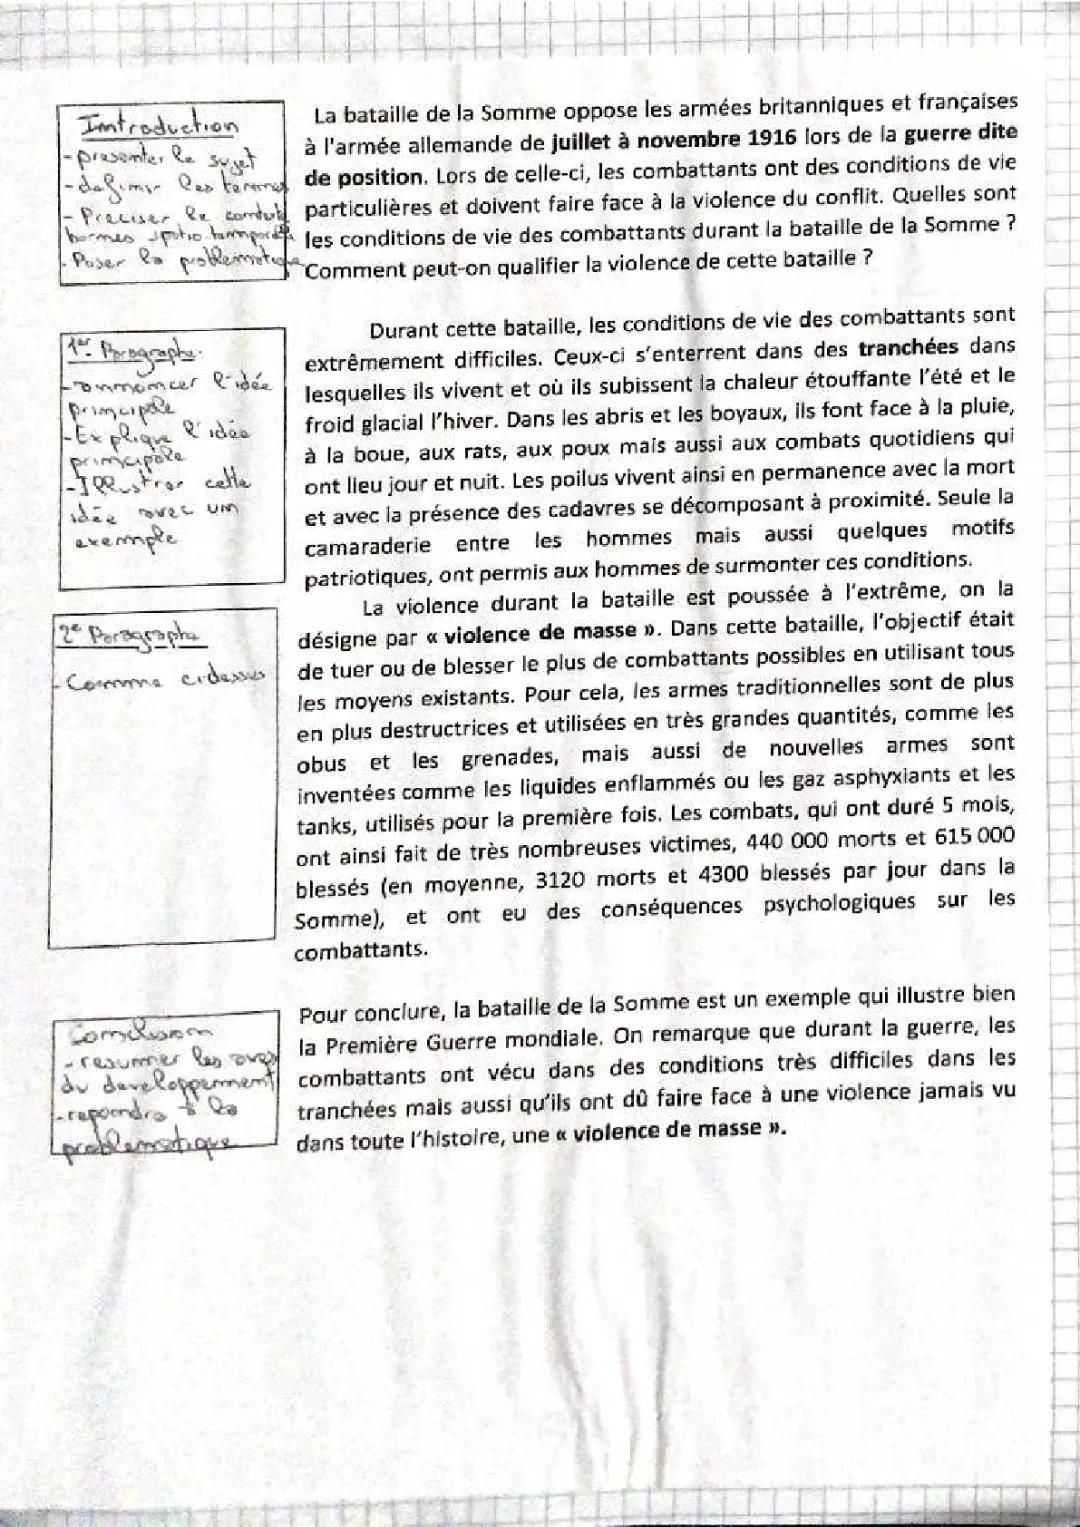 Introduction
- presenter le sujet
- definir les termes
- Preciser le
bornes spatio-temporelle
- Poser la problematique
La bataille de la Somme oppose les armées britanniques et françaises
à l'armée allemande de juillet à novembre 1916 lors de la guerre dite
de position. Lors de celle-ci, les combattants ont des conditions de vie
particulières et doivent faire face à la violence du conflit. Quelles sont
les conditions de vie des combattants durant la bataille de la Somme ?
Comment peut-on qualifier la violence de cette bataille ?
1er Paragraphe.
- annoncer l'idée
principale
- Explique l'idée
principale
- Illustrer cette
idée avec un
exemple
Durant cette bataille, les conditions de vie des combattants sont
extrêmement difficiles. Ceux-ci s'enterrent dans des tranchées dans
lesquelles ils vivent et où ils subissent la chaleur étouffante l'été et le
froid glacial l'hiver. Dans les abris et les boyaux, ils font face à la pluie,
à la boue, aux rats, aux poux mais aussi aux combats quotidiens qui
ont lieu jour et nuit. Les poilus vivent ainsi en permanence avec la mort
et avec la présence des cadavres se décomposant à proximité. Seule la
camaraderie entre les hommes mais aussi quelques motifs
patriotiques, ont permis aux hommes de surmonter ces conditions.
2e Paragraphe
- Comme cidessus
La violence durant la bataille est poussée à l'extrême, on la
désigne par « violence de masse ». Dans cette bataille, l'objectif était
de tuer ou de blesser le plus de combattants possibles en utilisant tous
les moyens existants. Pour cela, les armes traditionnelles sont de plus
en plus destructrices et utilisées en très grandes quantités, comme les
obus et les grenades, mais aussi de nouvelles armes sont
inventées comme les liquides enflammés ou les gaz asphyxiants et les
tanks, utilisés pour la première fois. Les combats, qui ont duré 5 mois,
ont ainsi fait de très nombreuses victimes, 440 000 morts et 615 000
blessés (en moyenne, 3120 morts et 4300 blessés par jour dans la
Somme), et ont eu des conséquences psychologiques sur les
combattants.
Conclusion
- resumer les axes
du developpement
- repondre à la
problematique
Pour conclure, la bataille de la Somme est un exemple qui illustre bien
la Première Guerre mondiale. On remarque que durant la guerre, les
combattants ont vécu dans des conditions très difficiles dans les
tranchées mais aussi qu'ils ont dû faire face à une violence jamais vu
dans toute l'histoire, une « violence de masse ».